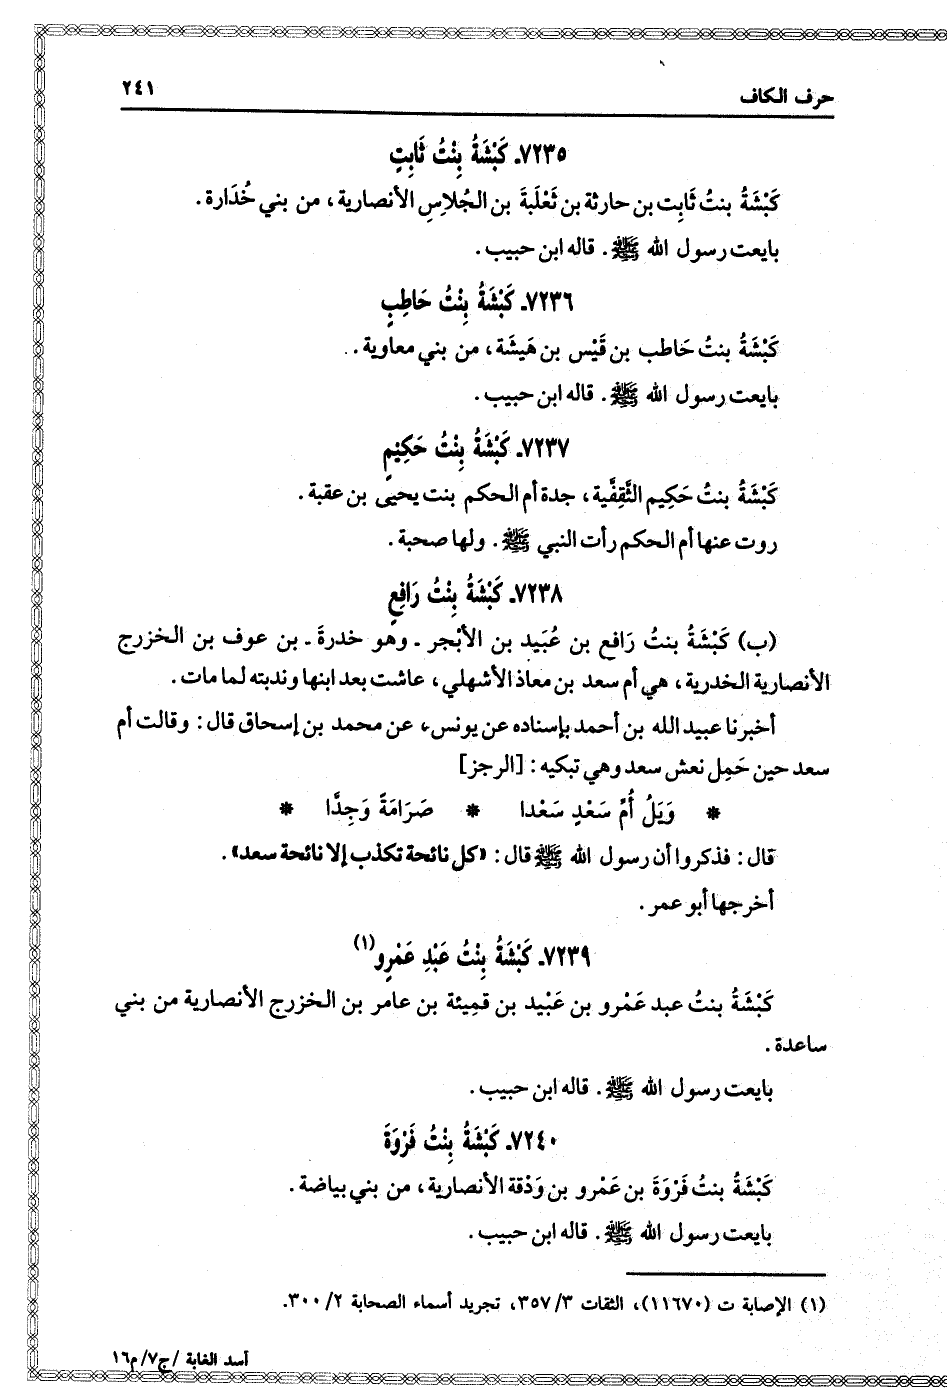 حرف الكاف ٢٤١
٧٢٣٥ـ كَبْشَةُ بِنْتُ ثَابِتٍ
كَبْشَةُ بنتُ ثَابِت بن حارثة بن ثَعْلَبَةَ بن الجُلاسِ الأنصارية، من بني خُدَارة.
بايعت رسول الله ﷺ. قاله ابن حبيب.
٧٢٣٦ـ كَبْشَةُ بِنْتُ حَاطِبٍ
كَبْشَةُ بنتُ حَاطب بن قَيْس بن هَيشَة، من بني معاوية.
بايعت رسول الله ﷺ. قاله ابن حبيب.
٧٢٣٧ـ كَبْشَةُ بِنْتُ حَكِيْمٍ
كَبْشَةُ بنتُ حَكِيم الثَّقِفَّية، جدة أم الحكم بنت يحيى بن عقبة.
روت عنها أم الحكم رأت النبي ﷺ. ولها صحبة.
٧٢٣٨ـ كَبْشَةُ بِنْتُ رَافِعٍ
(ب) كَبْشَةُ بنتُ رَافع بن عُبَيد بن الأبْجر ـ وهو خدرةَ ـ بن عوف بن الخزرج
الأنصارية الخدرية، هي أم سعد بن معاذ الأشهلي، عاشت بعد ابنها وندبته لما مات.
أخبرنا عبيد الله بن أحمد بإسناده عن يونس، عن محمد بن إسحاق قال: وقالت أم
سعد حين حَمِل نعش سعد وهي تبكيه: [الرجز]
* وَيَلُ أُمِّ سَعْدٍ سَعْدا * صَرَامَةً وَجِدَّا *
قال: فذكروا أن رسول الله ﷺ قال: «كل نائحة تكذب إلا نائحة سعد».
أخرجها أبو عمر.
٧٢٣٩ـ كَبْشَةُ بِنْتُ عَبْدِ عَمْرٍو(١)
كَبْشَةُ بنتُ عبد عَمْرو بن عَبْيد بن قمِيئة بن عامر بن الخزرج الأنصارية من بني
ساعدة.
بايعت رسول الله ﷺ. قاله ابن حبيب.
٧٢٤٠ـ كَبْشَةُ بِنْتُ فَرْوَةَ
كَبْشَةُ بنتُ فَرْوَةَ بن عَمْرو بن وَدْقة الأنصارية، من بني بياضة.
بايعت رسول الله ﷺ. قاله ابن حبيب.
(١) الإصابة ت (١١٦٧٠)، الثقات ٣/ ٣٥٧، تجريد أسماء الصحابة ٢/ ٣٠٠.
أسد الغابة /ج٧/ م١٦